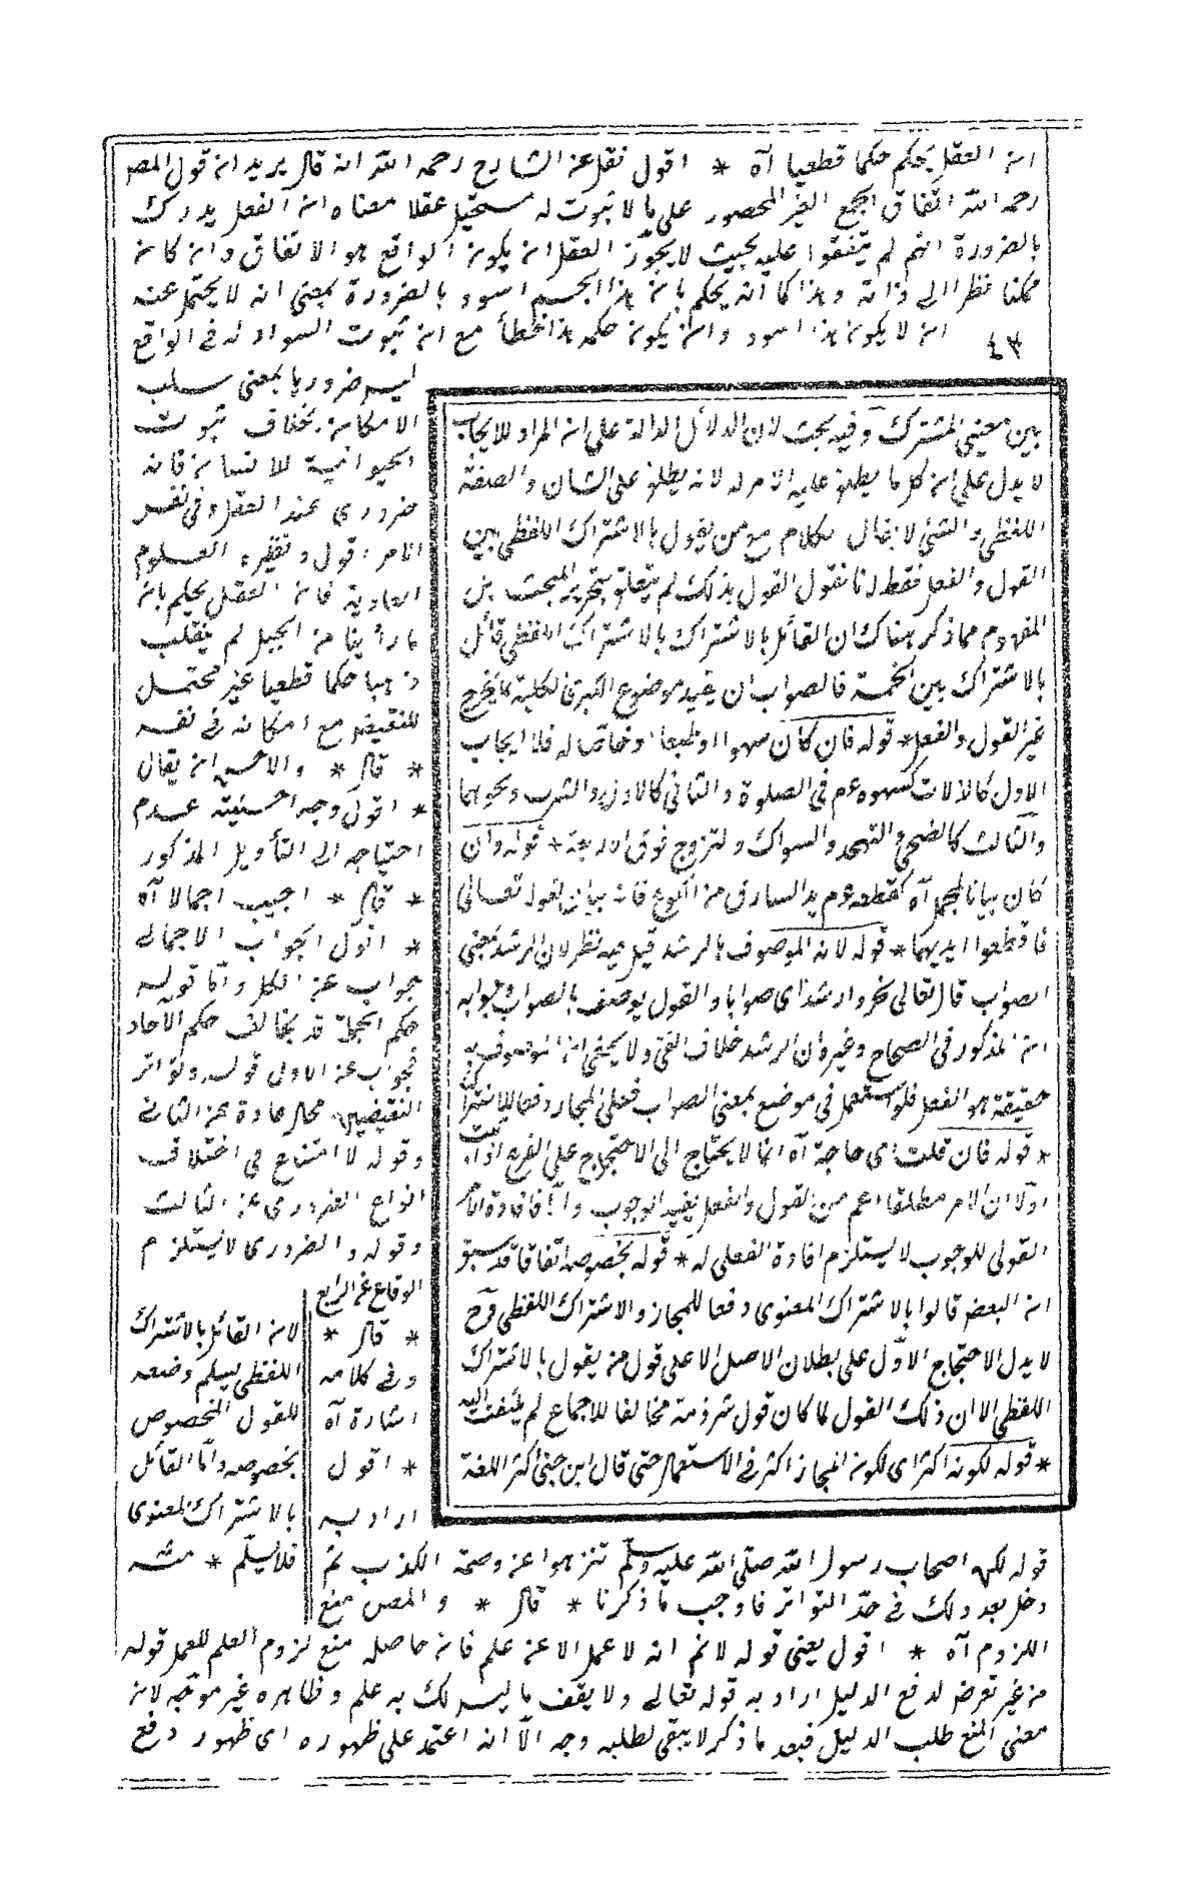 ان العقل يحكم حكما قطعيا آه * اقول نقل عن الشارح رحمه الله انه قال يريد ان قول المص
رحمه الله اتفاق الجمع الغير المحصور على ما لا ثبوت له مستحيل عقلا معناه ان العقل يدرك
بالضرورة انهم لم يتفقوا عليه بحيث لا يجوّز العقل ان يكون الواقع هو الاتفاق وان كان
ممكنا نظرا الى ذاته وهذا كما أنه يحكم بان هذا الجسم اسود بالضرورة بمعنى انه لا يحتمل عنده
ان لا يكون هذا اسود وان يكون حكمه هذا خطأ مع ان ثبوت السواد له فى الواقع
٤٣
ليس ضروريا بمعنى سلب
الامكان بخلاف ثبوت
الحيوانية للانسان فانه
ضرورى عند العقل وفى نفس
الامر اقول ونظيره العلوم
العادية فان العقل يحكم بان
ما رأينا من الجبل لم ينقلب
ذهبا حكما قطعيا غير محتمل
للنقيض مع امكانه فى نفسه
* قال * والاحسن ان يقال
* اقول وجه احسنيته عدم
احتياجه الى التأويل المذكور
* قال * اجيب اجمالا آه
* اقول الجواب الاجمالى
جواب عن الكل وامّا قوله
حكم الجملة قد يخالف حكم الآحاد
فجواب عن الاول قوله وتواتر
النقيضين محال عادة عن الثانى
وقوله لا امتناع فى اختلاف
انواع الضرورى عن الثالث
وقوله والضرورى لا يستلزم
الوفاق عن الرابع
* قال *
وفى كلامه
اشارة آه
* اقول
اراد به
قوله لكن اصحاب رسول الله صلى الله عليه وسلم تنزهوا عن وصمة الكذب ثم
دخل بعد ذلك فى حدّ التواتر فاوجب ما ذكرنا * قال * والمص منع
اللزوم آه * اقول يعنى قوله لانم انه لا عمل الا عن علم فان حاصله منع لزوم العلم للعمل قوله
من غير تعرض لدفع الدليل اراد به قوله تعالى ولا تقف ما ليس لك به علم وظاهره غير موجه لان
معنى المنع طلب الدليل فبعد ما ذكر لا يبقى لطلبه وجه الّا انه اعتمد على ظهوره اى ظهور دفع
بين معنيى المشترك وفيه بحث لان الدلائل الدالة على ان المراد للايجاب
لا يدل على ان كل ما يطلق عليه الامر له لانه يطلق على الشان والصفة
اللفظى والشئ لا يقال الكلام مع من يقول بالاشتراك اللفظى بين
القول والفعل فقط لانا نقول القول بذلك لم يتعلق بتحرير المبحث بل
المفهوم مما ذكر هناك ان القائل بالاشتراك بالاشتراك اللفظى قائل
بالاشتراك بين الخمسة فالصواب ان يقيد موضوع الكبرى الكلية بما يخرج
غير القول والفعل * قوله فان كان سهوا او طبعا او خاصّا له فلا ايجاب
الاول كالزلات كسهوه عم فى الصلوة والثانى كالاكل والشرب ونحوهما
والثالث كالضحى والتهجد والسواك والتزوج فوق الاربعة * قوله وان
كان بيانا لمجمل آه كقطعه عم يد السارق من الكوع فانه بيان لقوله تعالى
فاقطعوا ايديهما * قوله لانه الموصوف بالرشد قيل فيه نظر لان الرشد بمعنى
الصواب قال تعالى تحروا رشدا اى صوابا والقول يوصف بالصواب جوابه
ان المذكور فى الصحاح وغيره ان الرشد خلاف الغى ولا يخفى ان الموصوف به
حقيقة هو الفعل فلو استعمل فى موضع بمعنى الصواب فعلى المجاز دفعا للاشتراك
* قوله فان قلت اى حاجة آه انما لا يحتاج الى الاحتجاج على الفرع اذا ثبت
اولا ان الامر مطلقا اعم من القول والفعل يفيد الوجوب والّا فافادة الامر
القولى للوجوب لا يستلزم افادة الفعلى له * قوله بخصوصه اتفاقا قد سبق
ان البعض قالوا بالاشتراك المعنوى دفعا للمجاز والاشتراك اللفظى وح
لا يدل الاحتجاج الاوّل على بطلان الاصل الا على قول من يقول بالاشتراك
اللفظى الا ان ذلك القول لما كان قول شرذمة مخالفا للاجماع لم يلتفت اليه
* قوله لكونه اكثر اى لكون المجاز اكثر فى الاستعمال حتى قال ابن جنى اكثر اللغة
لان القائل بالاشتراك
اللفظى يسلم وضعه
للقول المخصوص
بخصوصه وامّا القائل
بالاشتراك المعنوى
فلا يسلّم * منه